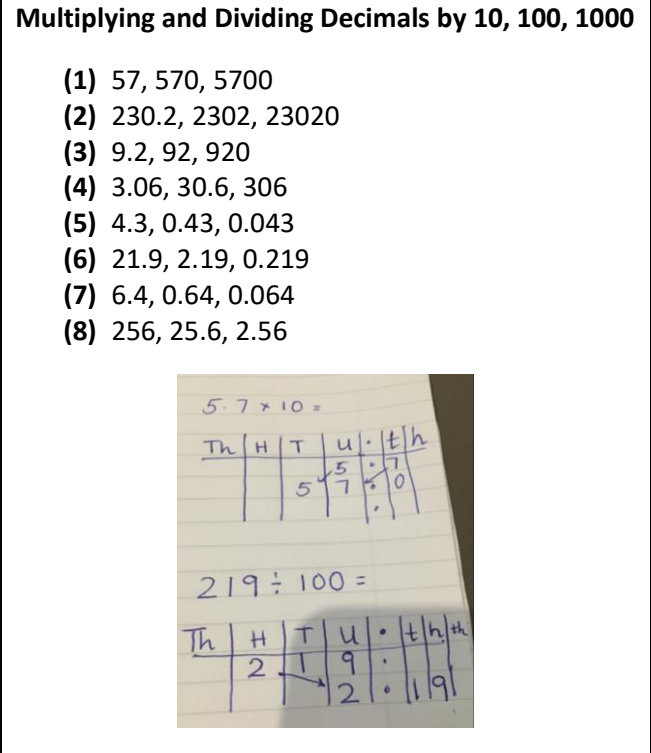 Multiplying and Dividing Decimals by 10, 100, 1000
(1) 57, 570, 5700
(2) 230.2, 2302, 23020
(3) 9.2, 92, 920
(4) 3.06, 30.6, 306
(5) 4.3, 0.43, 0.043
(6) 21.9, 2.19, 0.219
(7) 6.4, 0.64, 0.064
(8) 256, 25.6, 2.56
5.7 × 10 =
Th H T U . t h
5 . 7
5 7 . 0
.
219 ÷ 100 =
Th H T U . t h th
2 1 9 .
2 . 1 9